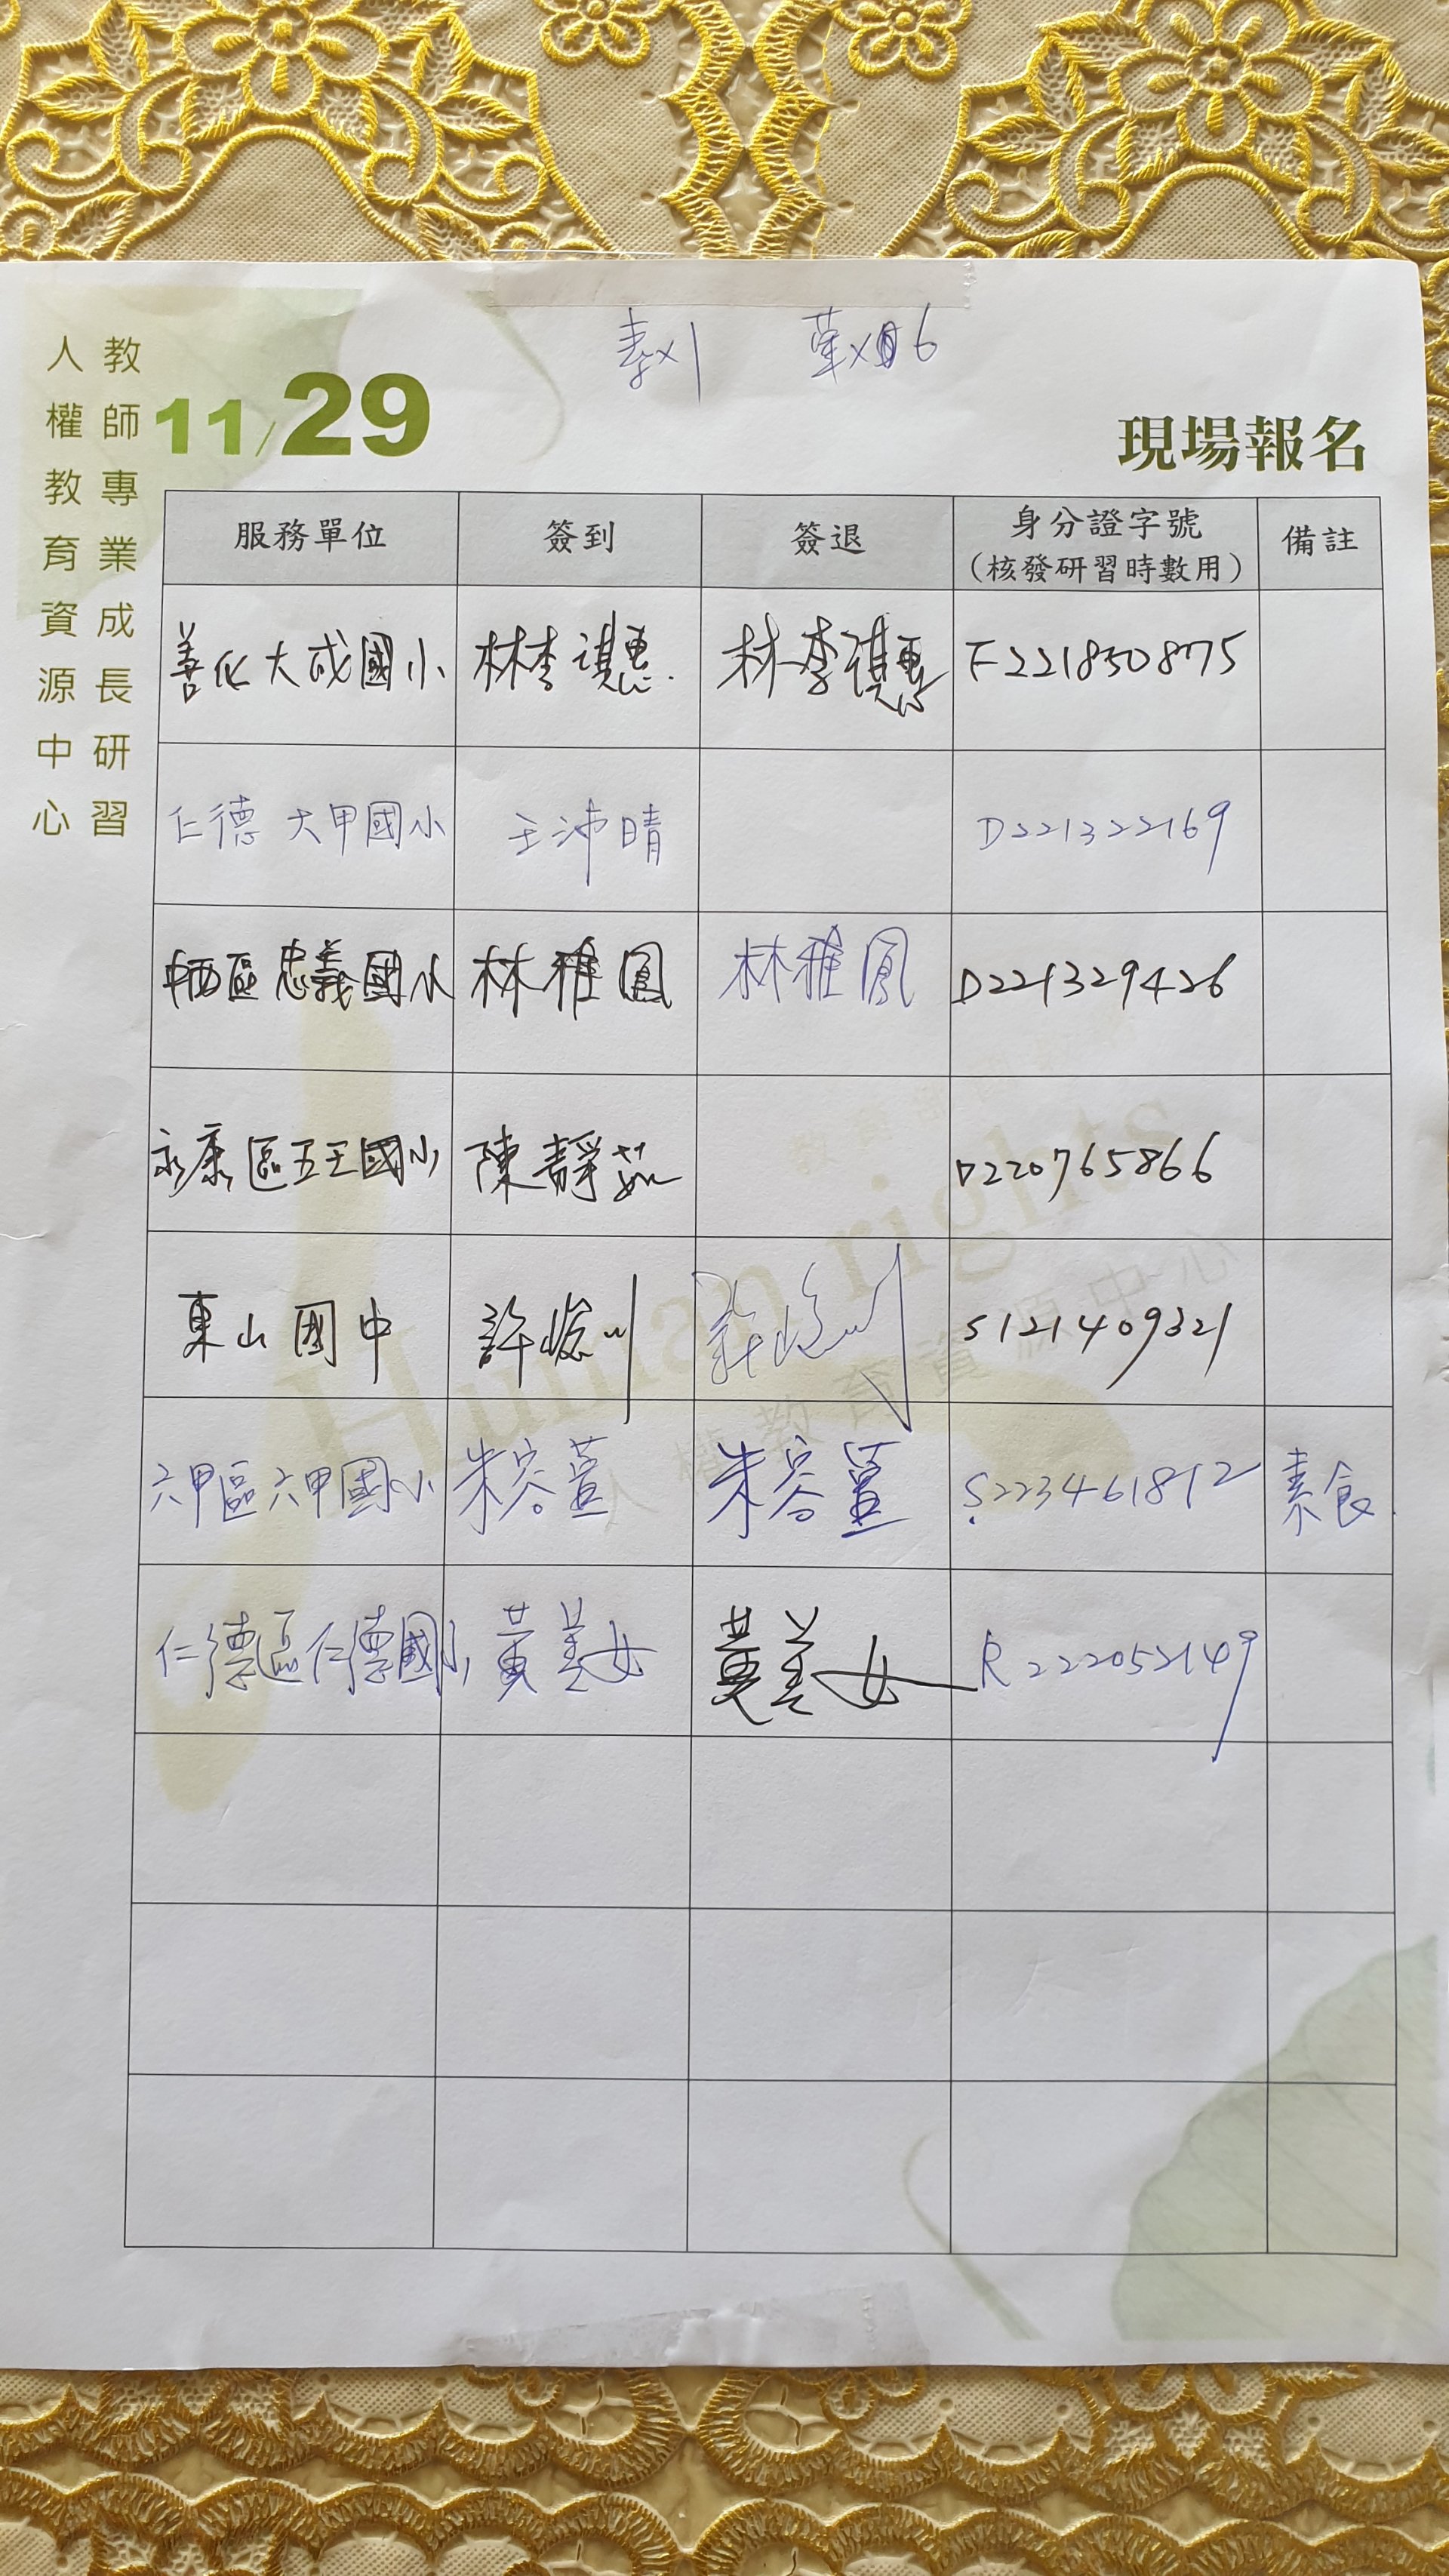 素x1 葷x6
教師專業成長研習
人權教育資源中心
11/29
現場報名
服務單位 簽到 簽退 身分證字號 備註
(核發研習時數用)
善化大成國小 林李祺惠 林李祺惠 F221830875
仁德 大甲國小 王沛晴 D221322169
中西區忠義國小 林雅鳳 林雅鳳 D221329426
永康區五王國小 陳靜茹 D220765866
東山國中 許 川 S121409321
六甲區六甲國小 朱容萱 朱容萱 S223461812 素食
仁德區仁德國小 黃美女 黃美女 R222052149
Human rights
人權教育資源中心